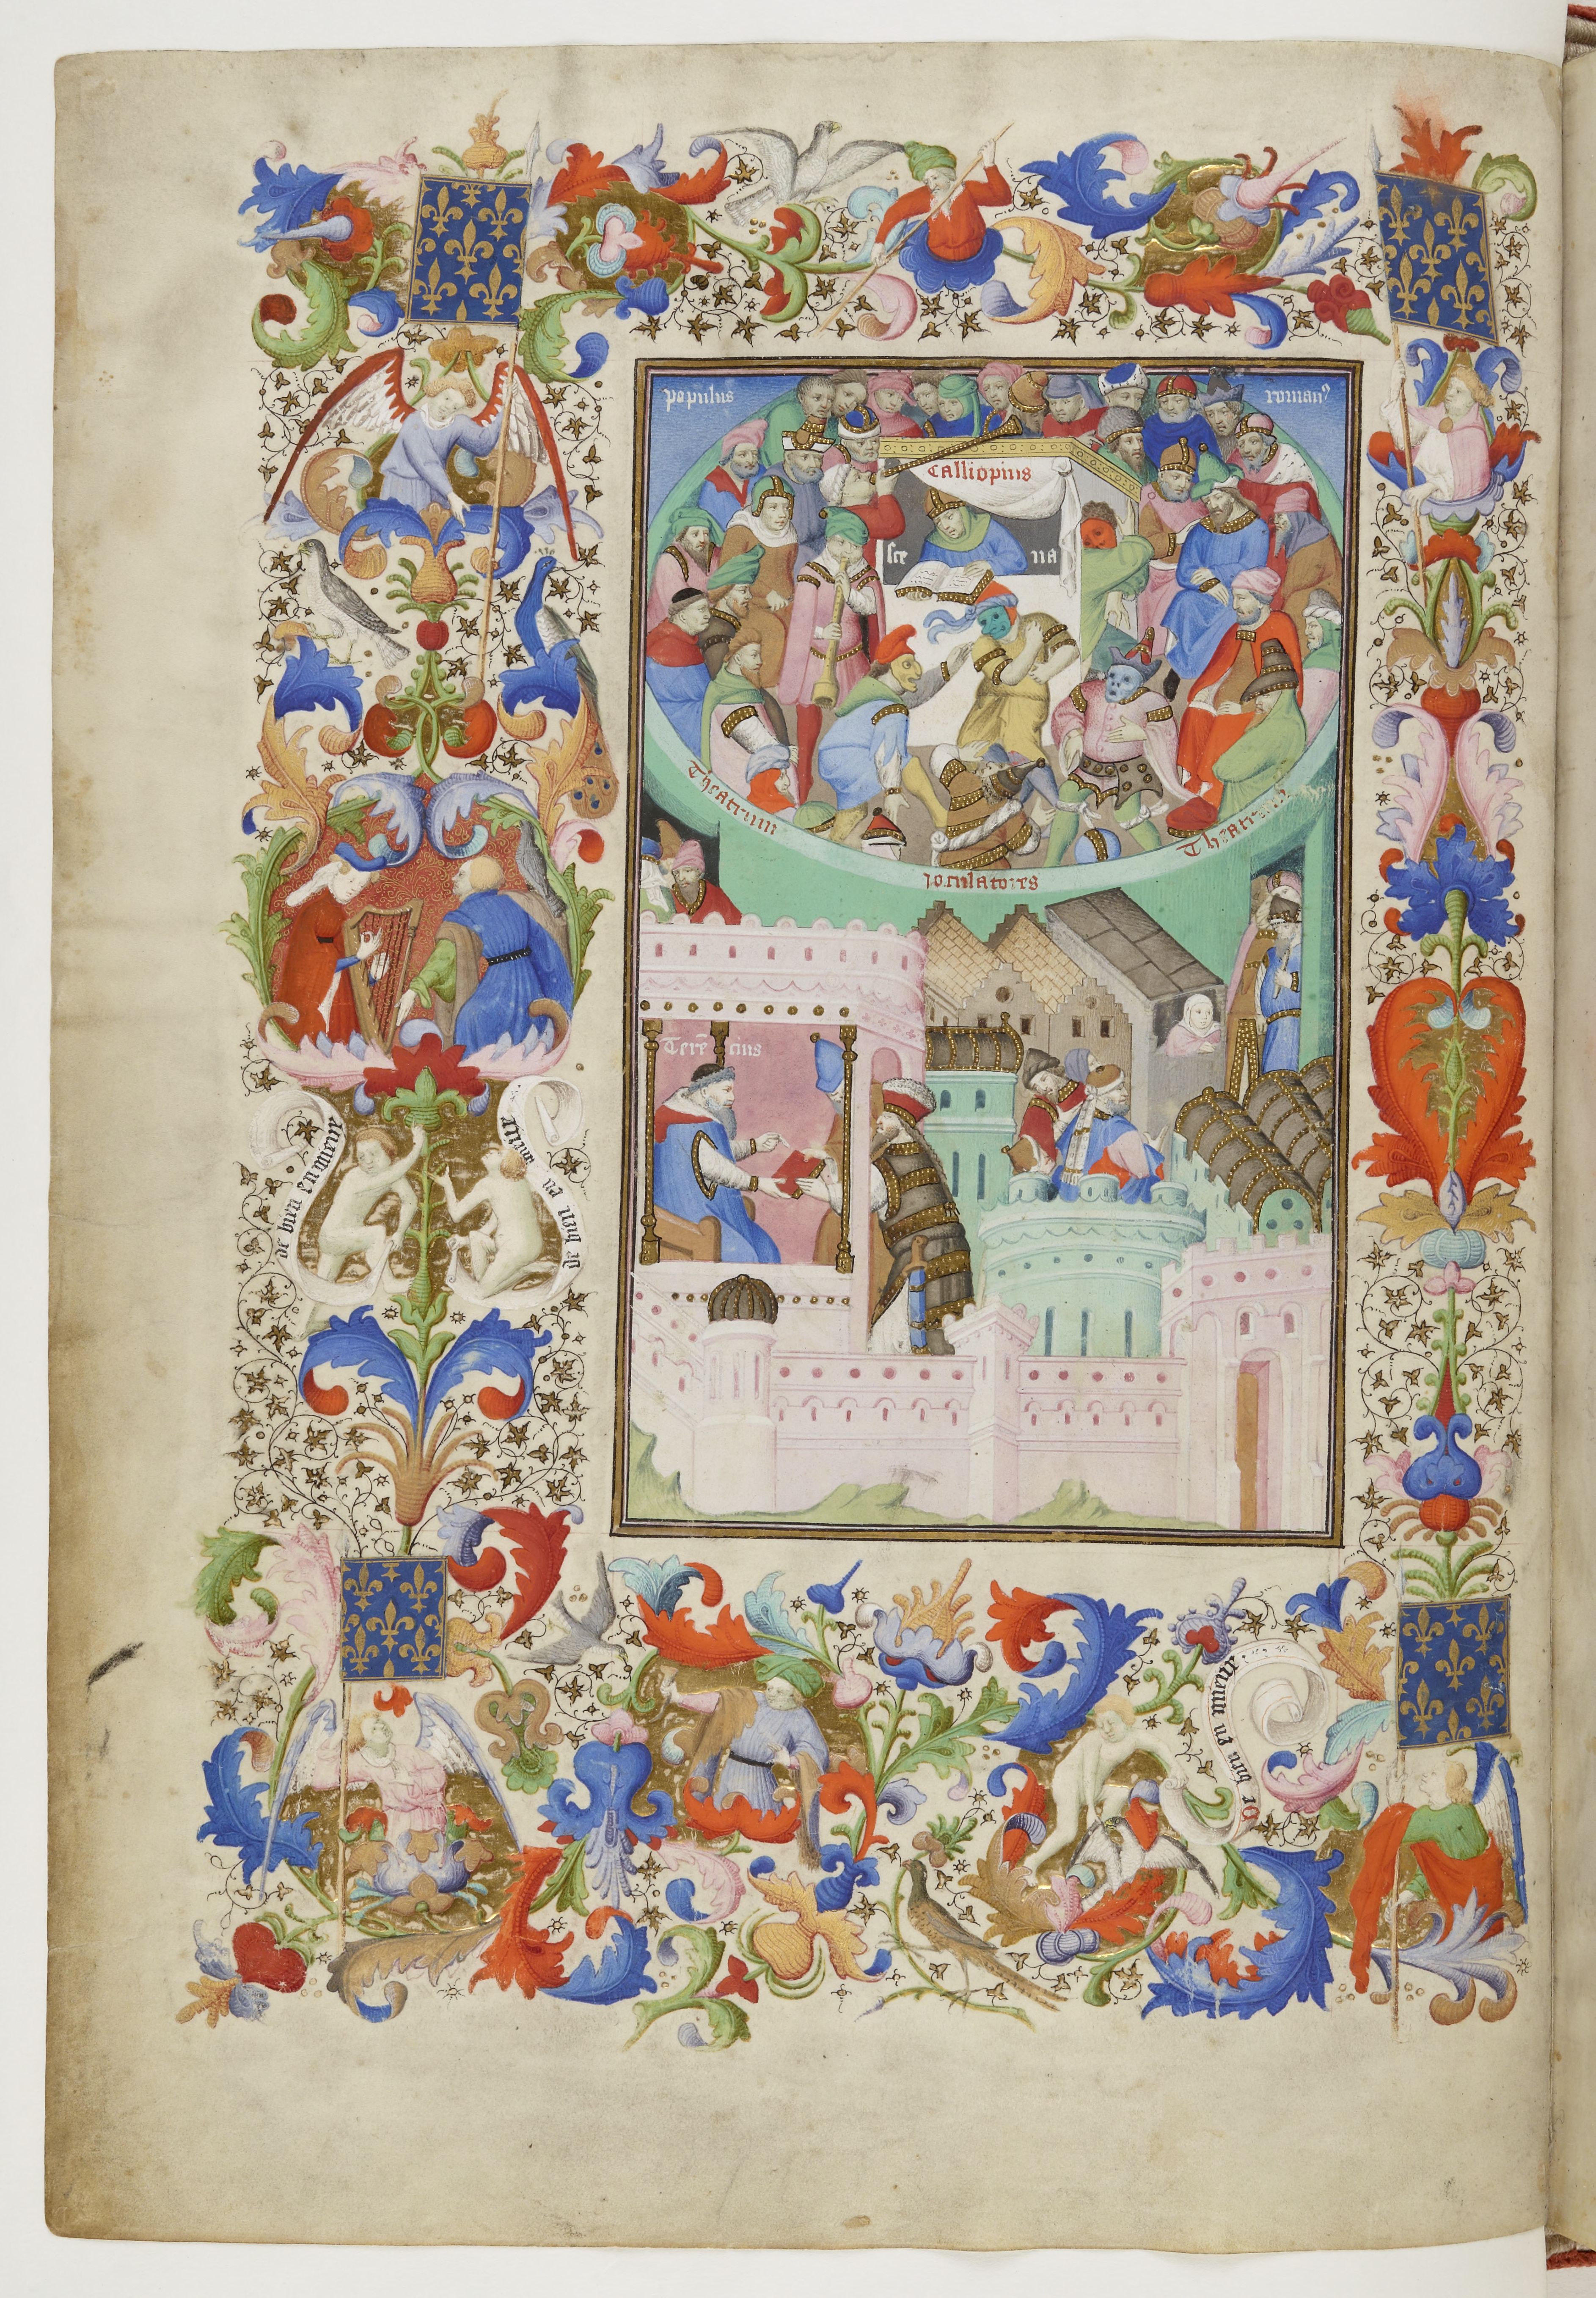 populus
romanꝰ
Calliopius
sce
na
Theatrum
Theatrum
Joculatores
Terē
cius
de bien en mieulx
de bien en mieulx
de bien en mieulx